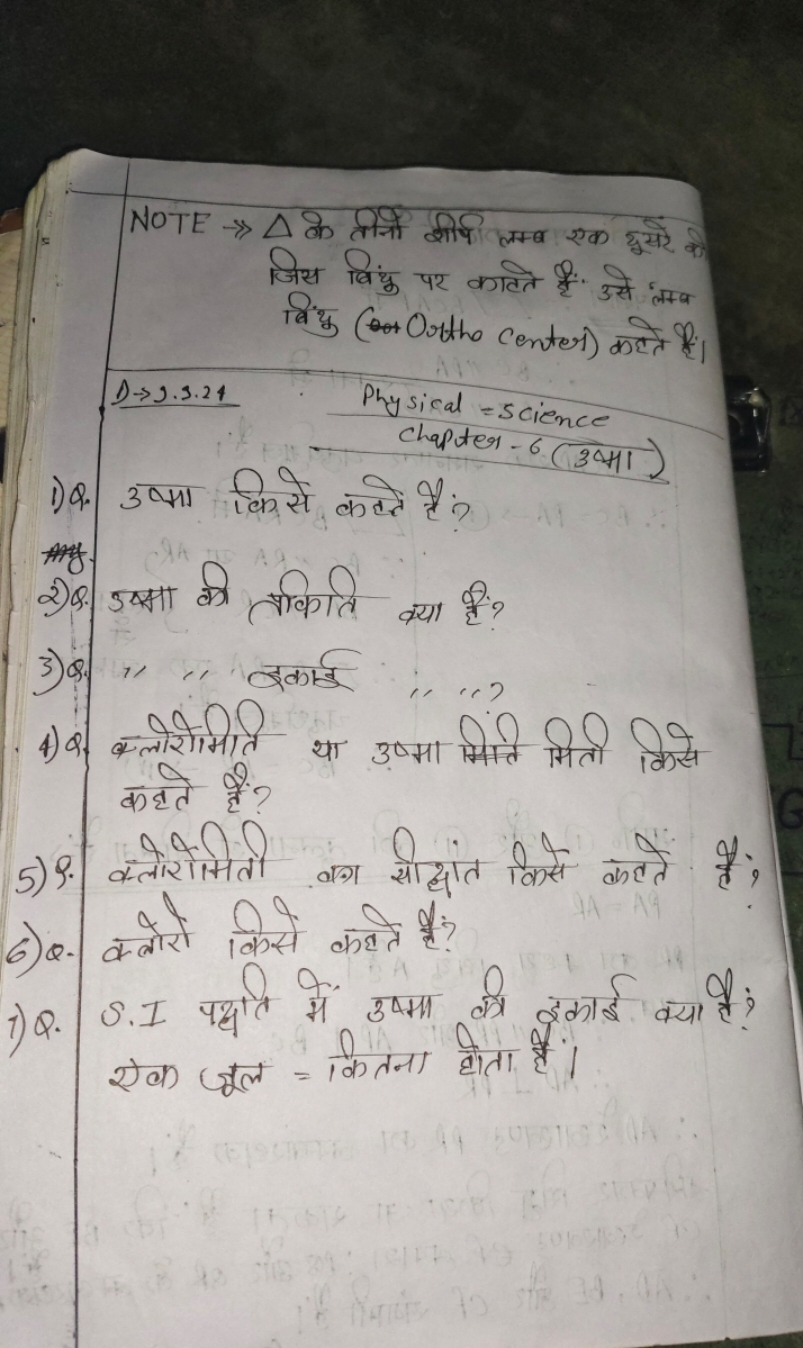 NOTE →» △ के तीनों शीर्ष लम्ब एक दूसरे को
जिस बिंदु पर काटते हैं उसे लम्ब
बिंदु (Ortho Center) कहते हैं।
D→9.9.21
Physical = Science
Chapter - 6 (उष्मा)
1)Q. उष्मा किसे कहते हैं?
2)Q. उष्मा की प्रकिति क्या हैं?
3)Q. " " इकाई " "?
4)Q. क्लोरोमिति या उष्मा मिती किसे
कहते हैं?
5)Q. क्लोरोमिती का सीद्धांत किसे कहते हैं?
6)Q. क्लोरी किसे कहते हैं?
7)Q. S.I पद्धति में उष्मा की इकाई क्या हैं?
ऐक जूल = कितना होता हैं।